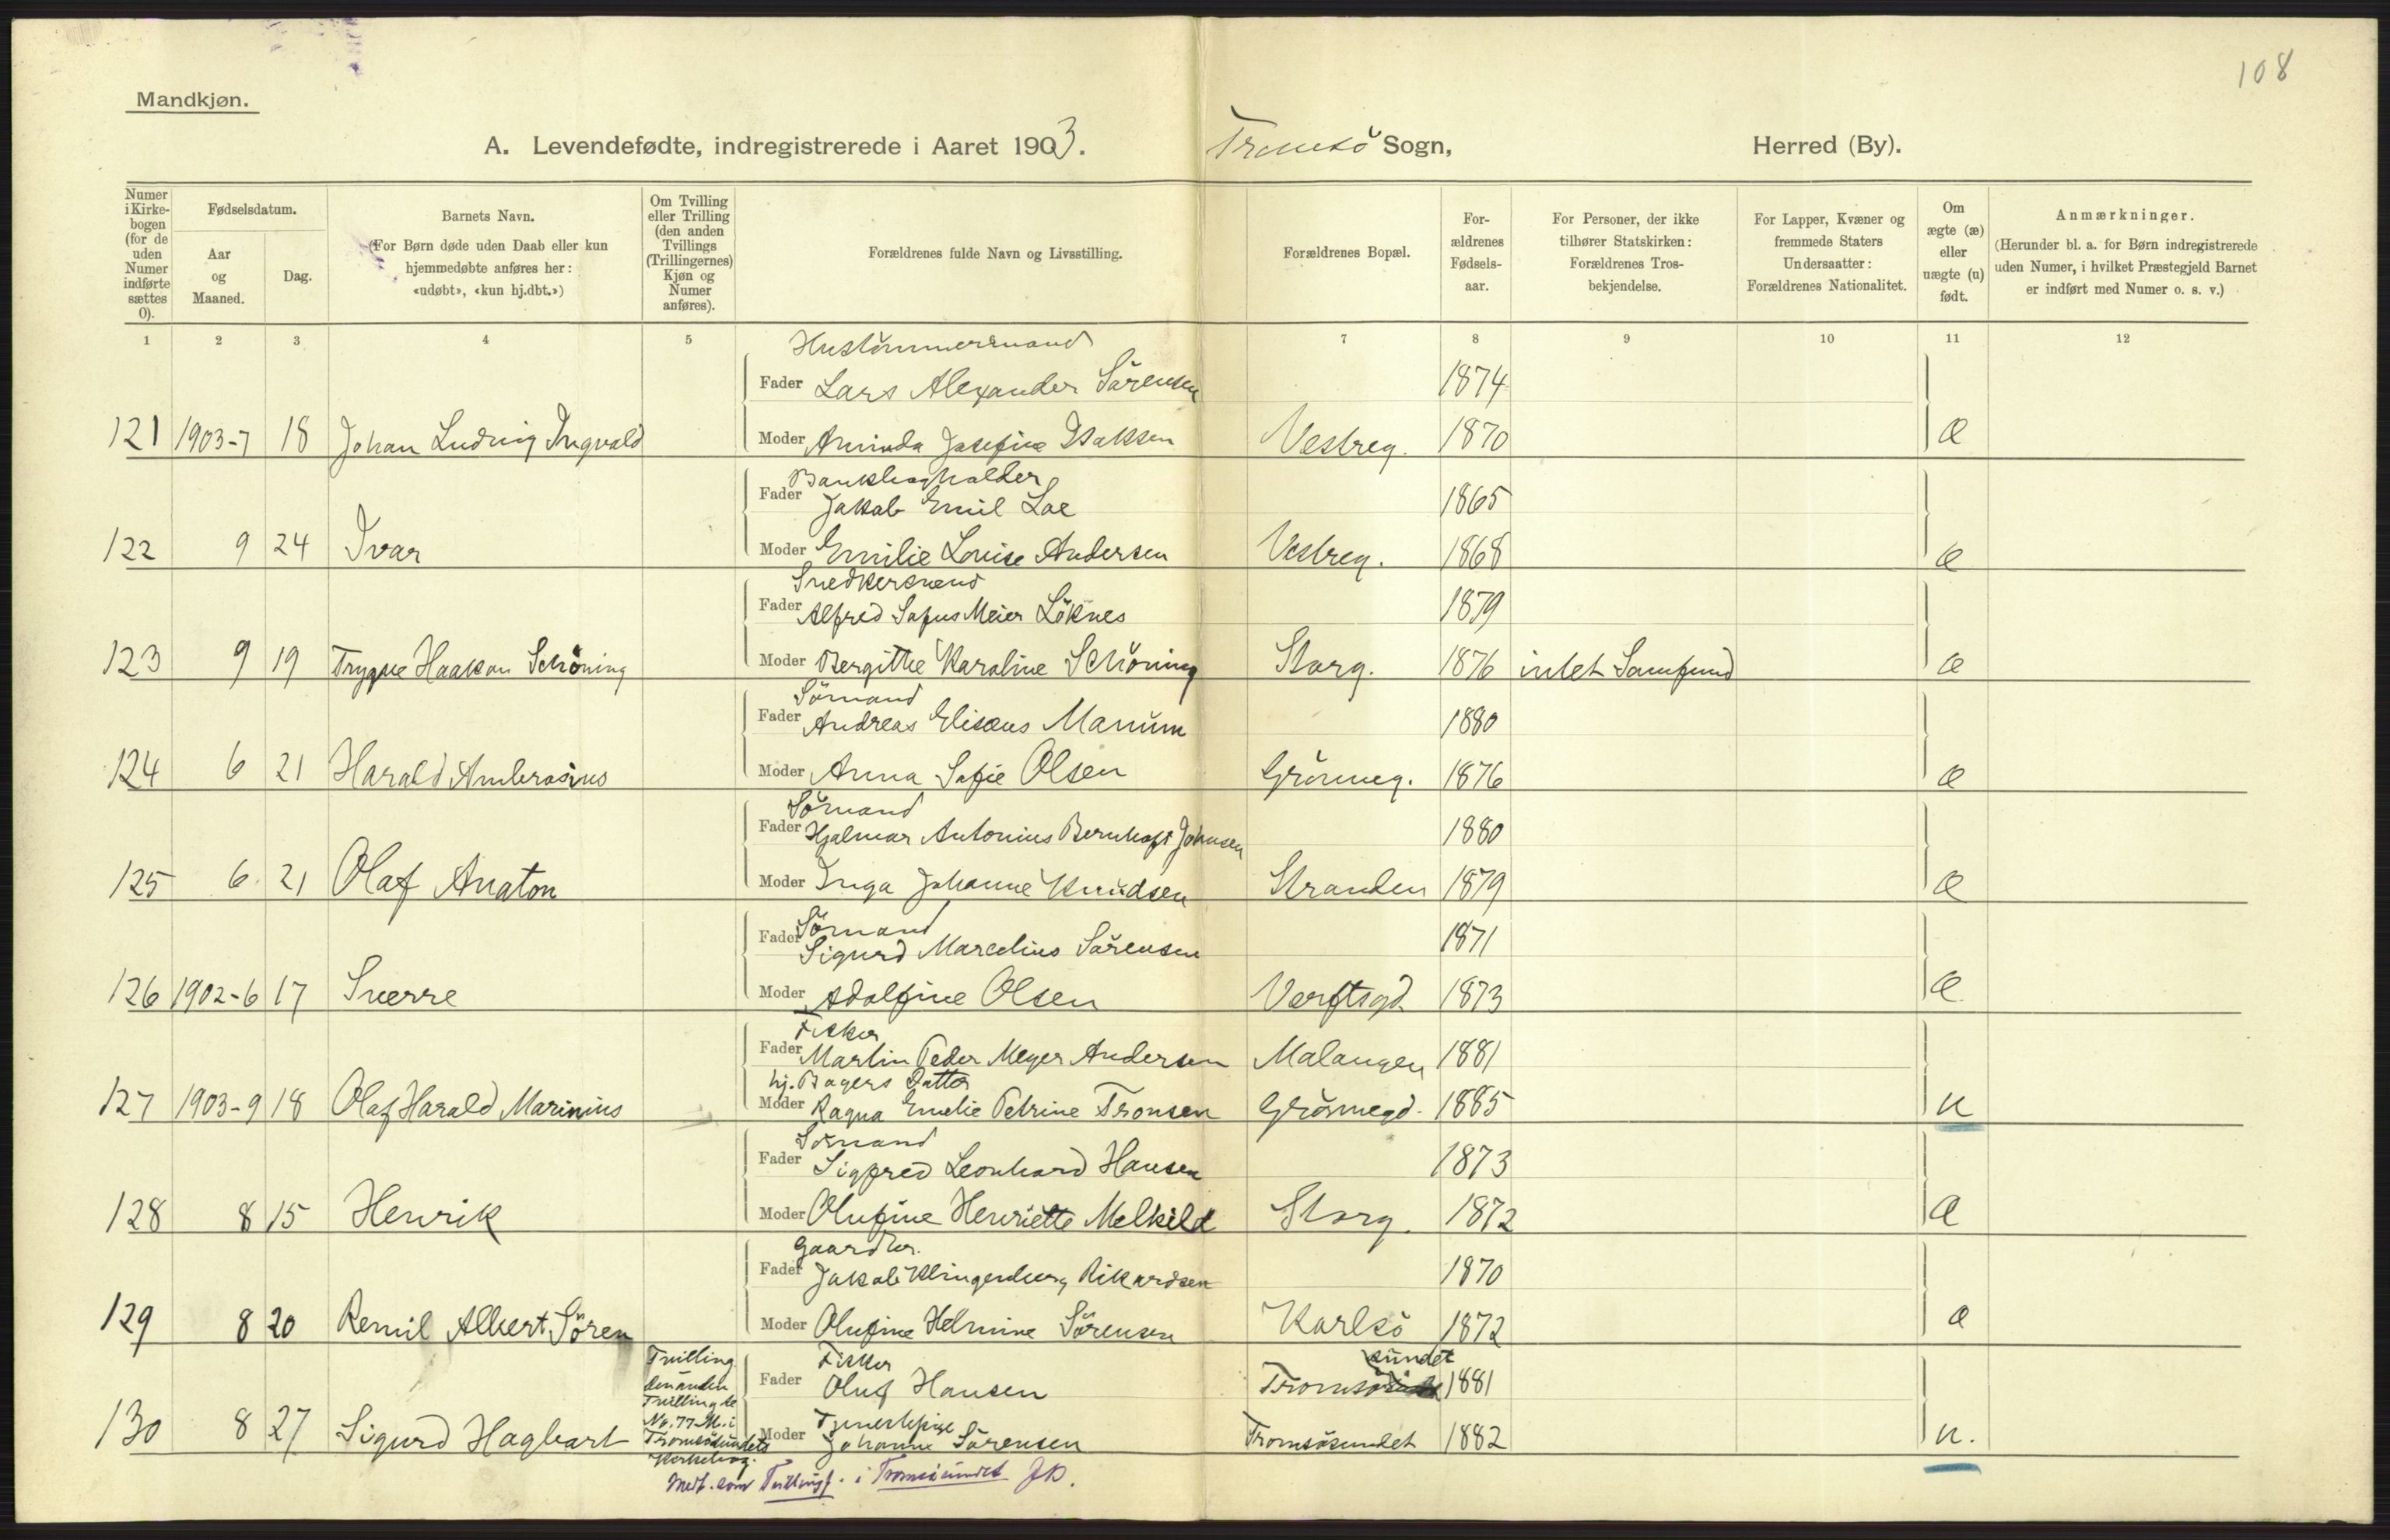 108
Mandkjøn.
A. Levendefødte, indregistrerede i Aaret 1903. Tromsö Sogn, Herred (By).
Numer i Kirkebogen (for de uden Numer indførte sættes 0).
Fødselsdatum.
Aar og Maaned.
Dag.
Barnets Navn.
(For Børn døde uden Daab eller kun hjemmedøbte anføres her: «udøbt», «kun hj.dbt.»)
Om Tvilling eller Trilling (den anden Tvillings (Trillingernes) Kjøn og Numer anføres).
Forældrenes fulde Navn og Livsstilling.
Forældrenes Bopæl.
Forældrenes Fødselsaar.
For Personer, der ikke tilhører Statskirken: Forældrenes Trosbekjendelse.
For Lapper, Kvæner og fremmede Staters Undersaatter: Forældrenes Nationalitet.
Om ægte (æ) eller uægte (u) født.
Anmærkninger.
(Herunder bl. a. for Børn indregistrerede uden Numer, i hvilket Præstegjeld Barnet er indført med Numer o. s. v.)
1 2 3 4 5 7 8 9 10 11 12
Hustömmermand
Fader Lars Alexander Sörensen 1874
121 1903-7 18 Johan Ludvig Ingvald Moder Aminda Josefine Isaksen Vestreg. 1870 æ
Bankbogholder
Fader Jakob Emil Loe 1865
122 9 24 Ivar Moder Emilie Louise Andersen Vestreg. 1868 æ
Snedkersvend
Fader Alfred Sofus Meier Löknes 1879
123 9 19 Trygve Haakon Schöning Moder Bergitthe Karoline Schöning Storg. 1876 intet Samfund æ
Sömand
Fader Andreas Eliseus Manum 1880
124 6 21 Harald Ambrosius Moder Anna Sofie Olsen Grönneg. 1876 æ
Sömand
Fader Hjalmar Antonius Bernhoft Johnsen 1880
125 6 21 Olaf Anaton Moder Inga Johanne Knudsen Stranden 1879 æ
Sömand
Fader Sigurd Marcelius Sörensen 1871
126 1902-6 17 Sverre Moder Adolfine Olsen Verftsgd. 1873 æ
Fisker
Fader Martin Peder Meyer Andersen Malangen 1881
hj. Bagers Datter
127 1903-9 18 Olaf Harald Marinius Moder Ragna Emelie Petrine Tronsen Grönnegd. 1885 u
Sömand
Fader Sigfred Leonhard Hansen 1873
128 8 15 Henrik Moder Olufine Henriette Melkild Storg. 1872 æ
Gaardbr.
Fader Jakob Klingenberg Rikardsen 1870
129 8 20 Remil Albert Sören Moder Olufine Helmine Sörensen Karlsö 1872 æ
Tvilling
den anden
Tvilling se
No. 77 M. i
Tromsösundets
Kirkebog.
Fisker
Fader Oluf Hansen Tromsösundet 1881
Tjenestepige
130 8 27 Sigurd Hagbart Moder Johanne Sörensen Tromsösundet 1882 u.
Medt. som Tvillingf. i Tromsösundet JB.